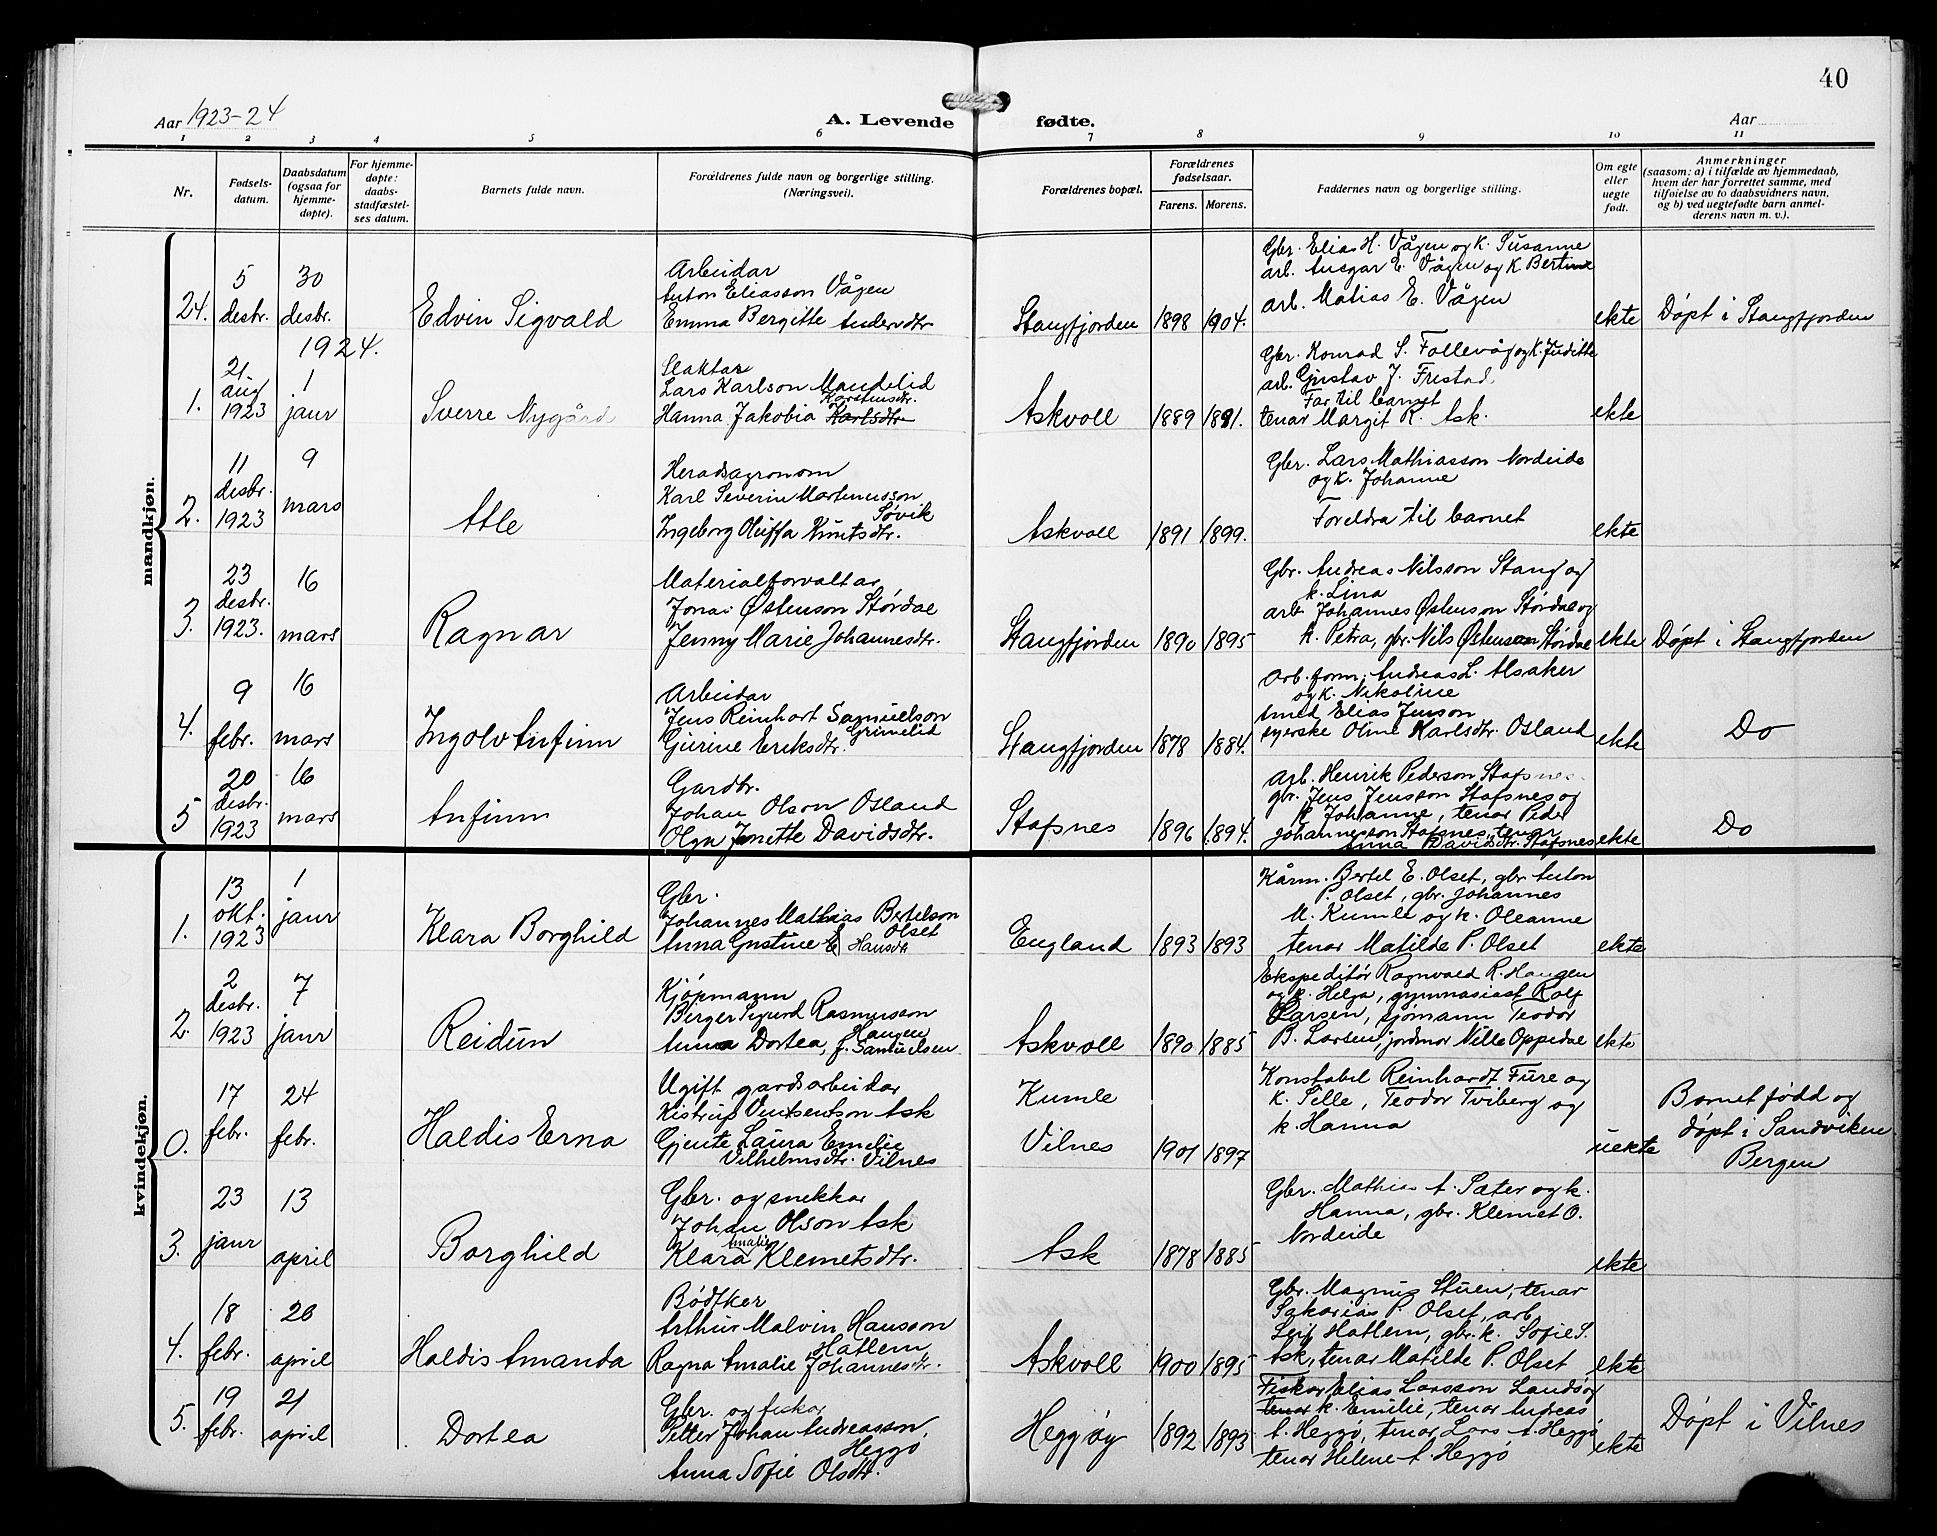 40
Aar 1923-24
A. Levende fødte.
Aar
1 2 3 4 5 6 7 8 9 10 11
Nr.
Fødsels-
datum.
Daabsdatum
(ogsaa for
hjemme-
døpte).
For hjemme-
døpte:
daabs-
stadfæstel-
ses datum.
Barnets fulde navn.
Forældrenes fulde navn og borgerlige stilling.
(Næringsvei).
Forældrenes bopæl.
Forældrenes
fødselsaar.
Farens. Morens.
Faddernes navn og borgerlige stilling.
Om egte
eller
uegte
født.
Anmerkninger
(saasom: a) i tilfælde av hjemmedaab,
hvem der har forrettet samme, med
tilføielse av to daabsvidners navn,
og b) ved uegtefødte barn anmel-
derens navn m. v.).
mandkjøn.
24.
5
desbr.
30
desbr.
Edvin Sigvald
Arbeidar
Anton Eliasson Vågen
Emma Bergitte Andersdtr
Stangfjorden
1898
1904.
Gbr. Elias H. Vågen og k. Susanne
arb. Ansgar E. Vågen og k Bertine
arb. Matias E. Vågen
ekte
Døpt i Stangfjorden
1924.
1.
21
aug
1923
1
jaur
Sverre Nygård
Slaktar
Lars Karlson Mandelid
Karstensdtr.
Hanna Jakobia Karlsdtr
Askvoll
1889
1891.
Gbr. Konrad S. Follevåg og k. Juditte
arb. Gustav J. Frestad
Far til barnet
tenar Margit R. Ask.
ekte
2.
11
desbr.
1923
9
mars
Atle
Heradsagronom
Karl Severin Martinusson
Søvik
Ingeborg Oluffa Knutsdtr.
Askvoll
1891
1899.
Gbr. Lars Mathiasson Nordeide
og k. Johanne
Foreldra til barnet
ekte
3.
23
desbr.
1923.
16
mars
Ragnar
Materialforvaltar
Jonas Østenson Størdal
Jenny Marie Johannesdtr.
Stangfjorden
1890
1895
Gbr. Andreas Nilsson Stang og
k. Lina
arb. Johannes Østenson Størdal og
k. Petra, gbr. Nils Østenson Størdal
ekte
Døpt i Stangfjorden
4.
9
febr.
16
mars
Ingolv Anfinn
Arbeidar
Jens Reinhart Samuelson
Grimelid
Gurine Eriksdtr.
Stangfjorden
1878
1884.
Arb. form. Andreas L. Alsaker
og k. Nikoline
smed Elias Jenson
syerske Oline Karlsdtr. Osland
ekte
Do
5
20
desbr.
1923
16
mars
Anfinn
Gardbr.
Johan Olson Osland
Olga Jenette Davidsdtr.
Stafsnes
1896
1894.
Arb. Henrik Pederson Stafsnes
gbr. Jens Jensson Stafsnes og
k Johanne, tenar Peder
Johannesson Stafsnes, tenar
Anna Davidsdtr. Stafsnes
ekte
Do
kvindekjøn.
1.
13
okt.
1923
1
jaur
Klara Borghild
Gbr.
Johannes Mathias Bertelson
Olset
Anna Gustine E Hansdtr
England
1893
1893
Kårm. Bertel E. Olset, gbr Anton
P. Olset, gbr. Johannes
M. Kumle og k. Oleanne
tenar Matilde P. Olset
ekte
2.
2
desbr.
1923
7
jaur
Reidun
Kjøpmann
Birger Sigurd Rasmusson
Haugen
Anna Dortea, f. Samuelsen
Askvoll
1890
1885
Ekspeditør Ragnvald R. Haugen
og k. Helga, gymnasiast Rolf
Larsen, sjømann Teodor
B. Larsen, jordmor Nille Oppedal
ekte
0.
17
febr.
24
febr.
Haldis Erna
Ugift gardsarbeidar
Kistrup Vintsentson Ask
Gjente Laura Emelie
Vilhelmsdtr. Vilnes
Kumle
Vilnes
1901
1897
Konstabel Reinhardt Fure og
k. Sille, Teodor Tviberg og
k. Hanna
uekte
Barnet fødd og
døpt i Sandviken
Bergen
3.
23
jaur
13
april
Borghild
Gbr. og snekkar
Johan Olson Ask
Amalie
Klara Klemetsdtr.
Ask
1878
1885
Gbr. Mathias A. Sæter og k.
Hanna, gbr. Klemet O.
Nordeide
ekte
4.
18
febr.
20
april
Haldis Amanda
Bødtker
Arthur Malvin Hansson
Hatlem
Ragna Amalie Johannesdtr.
Askvoll
1900
1895
Gbr. Magnus Stuen, tenar
Sakarias P. Olset, arb.
Leif Hatlem, gbr. k. Sofie S.
Ask, tenar Matilde P. Olset
ekte
5.
19
febr.
21
april
Dortea
Gbr. og fiskar
Petter Johan Andreasson
Heggø
Anna Sofie Olsdtr.
Heggøy
1892
1893
Fiskar Elias Larsson Landøy
tenar k. Emilie, tenar Andreas
A. Heggø, tenar Lars A. Heggø
tenar Helene A. Heggø
ekte
Døpt i Vilnes